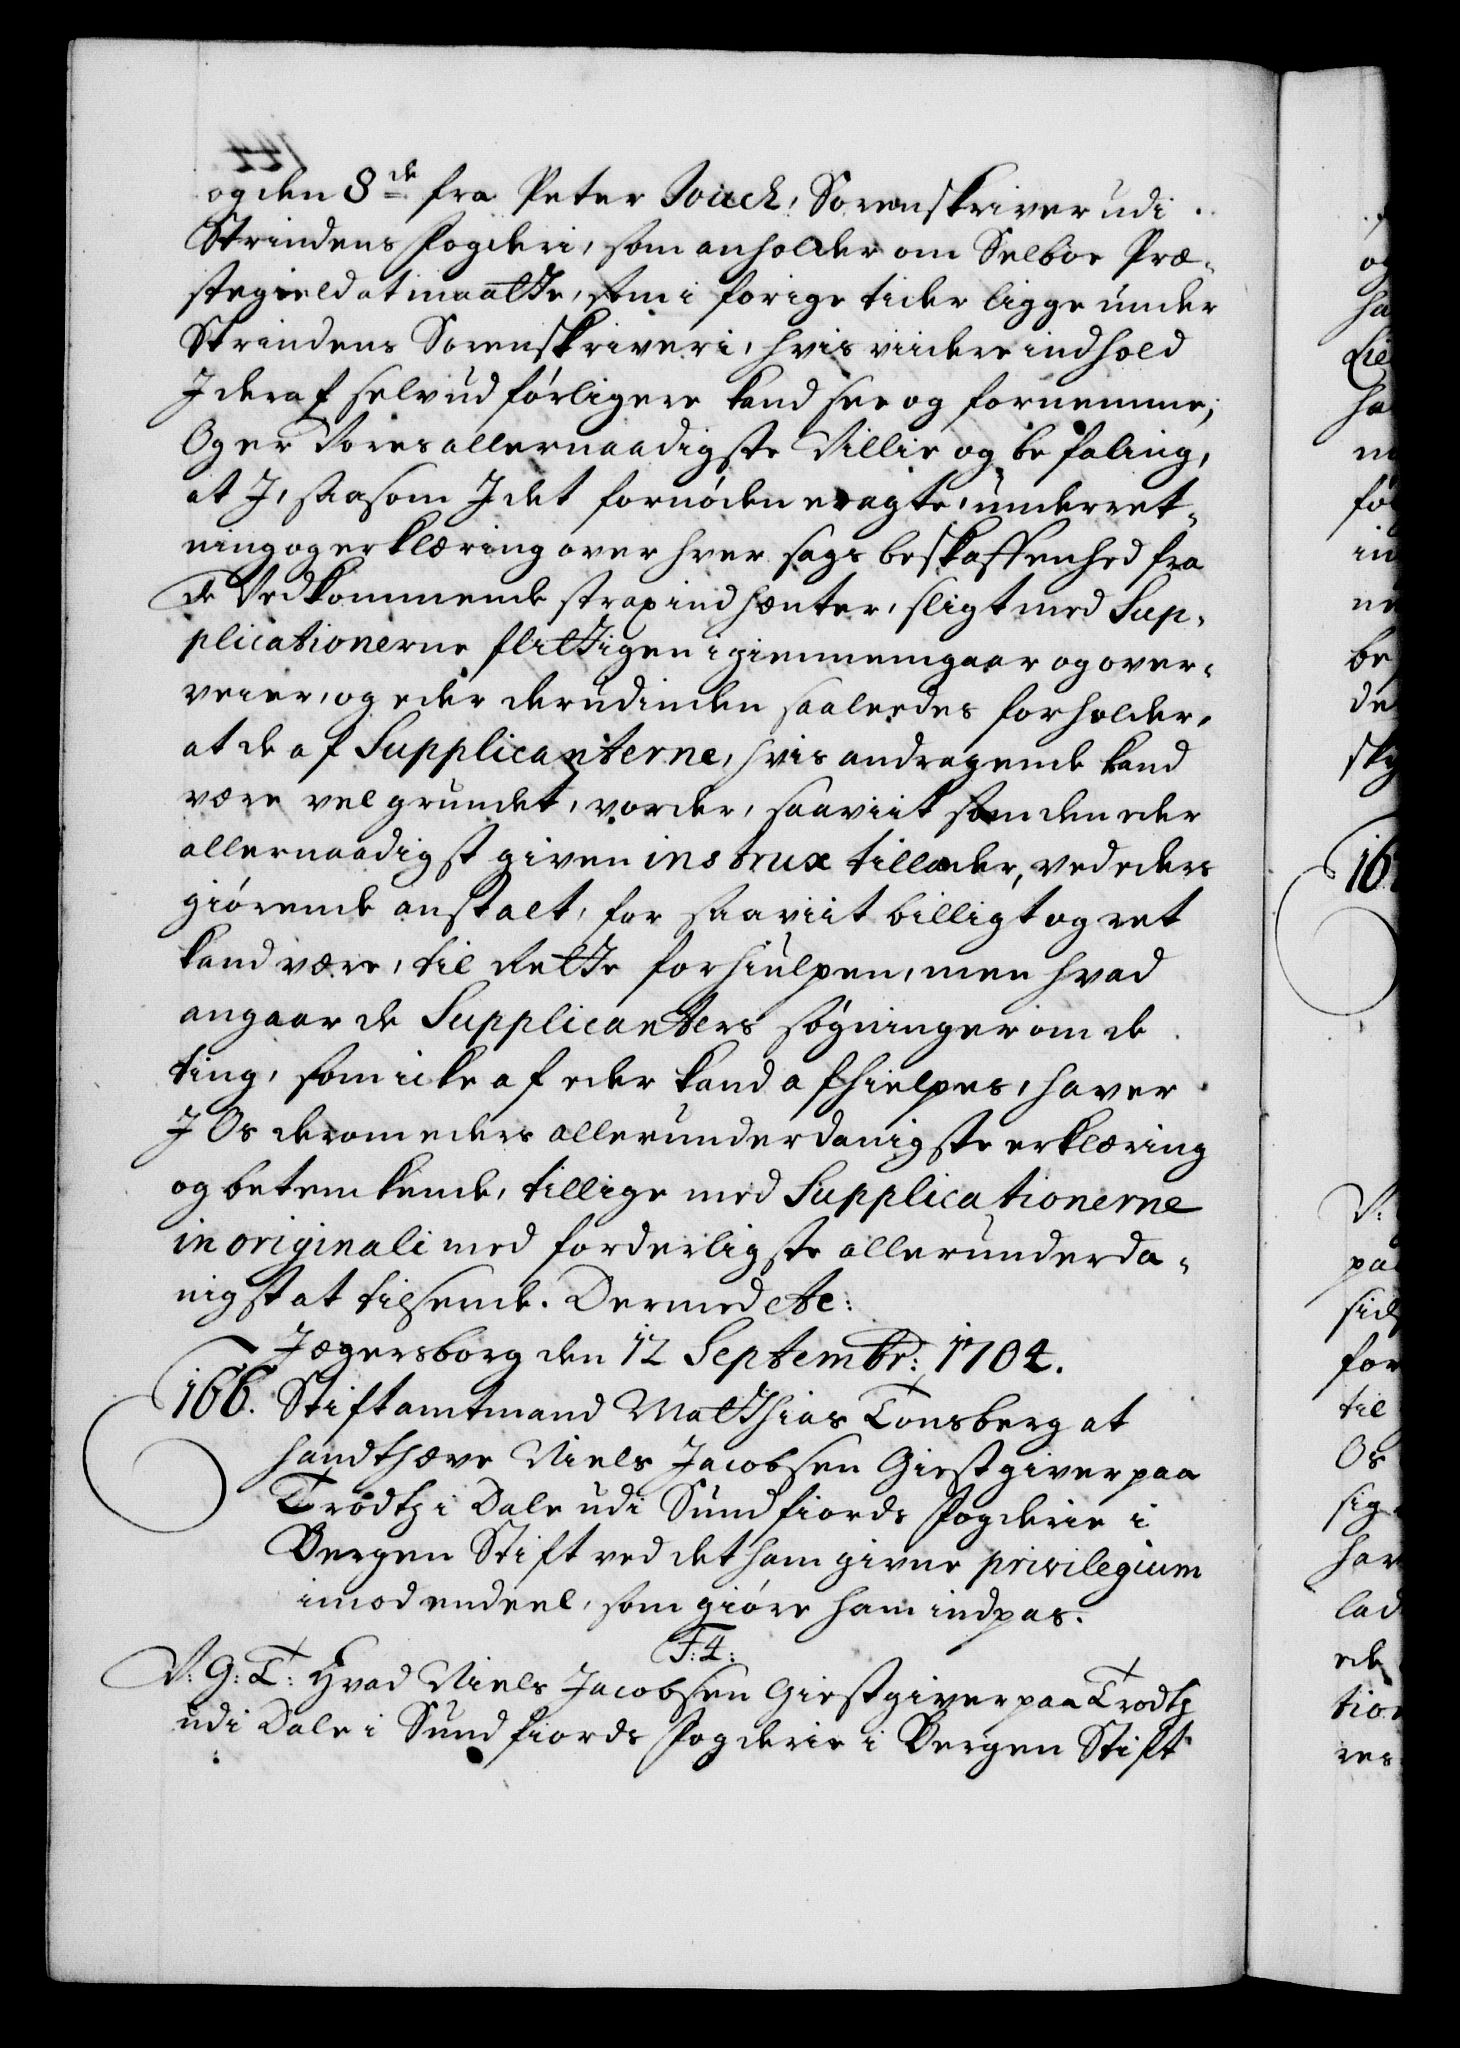 og den 8de fra Peter Juuck, Sorenskriver udi
Strindens Fogderi, som anholder om Selboe Præ-
stegield at maatte, som i forige tider ligge under
Strindens Sorenskriveri, hvis viidere indhold
I deraf selv udførligere kand see og fornemme;
Og er Vores allernaadigste Villie og befaling,
at I, saasom I det fornøden eragte, underret-
ning og erklæring over hver sags beskaffenhed fra
de Vedkommende strax indhænter, sligt med Sup-
plicationerne flittigen igiennemgaar og over-
veier, og eder derudinden saaledes forholder,
at de af Supplicanterne, hvis andragende kand
være vel grundet, vorder, saaviit som den eder
allernaadigst given instrux tillader, ved eders
giørende anstalt, for saaviit billigt og ret
kand være, til rette forhiulpen, men hvad
angaar de Supplicanters søgninger om de
ting, som icke af eder kand afhielpes, haver
I Os derom eders allerunderdanigste erklæring
og betenkende, tillige med Supplicationerne
in originali med forderligste allerunderda-
nigst at tilsende. Dermed etc:
Jægersborg den 12 Septembr: 1704.
166. Stiftamtmand Matthias Tonsberg at
handthæve Niels Jacobsen Giestgiver paa
Trødtz i Dale udi Sundfiords Fogderie i
Bergen Stift ved det ham givne privilegium
imod endeel, som giøre ham indpas.
F: 4:
V: G: T: Hvad Niels Jacobsen Giestgiver paa Trodtz
udi Dale i Sundfiords Fogderie i Bergen Stift